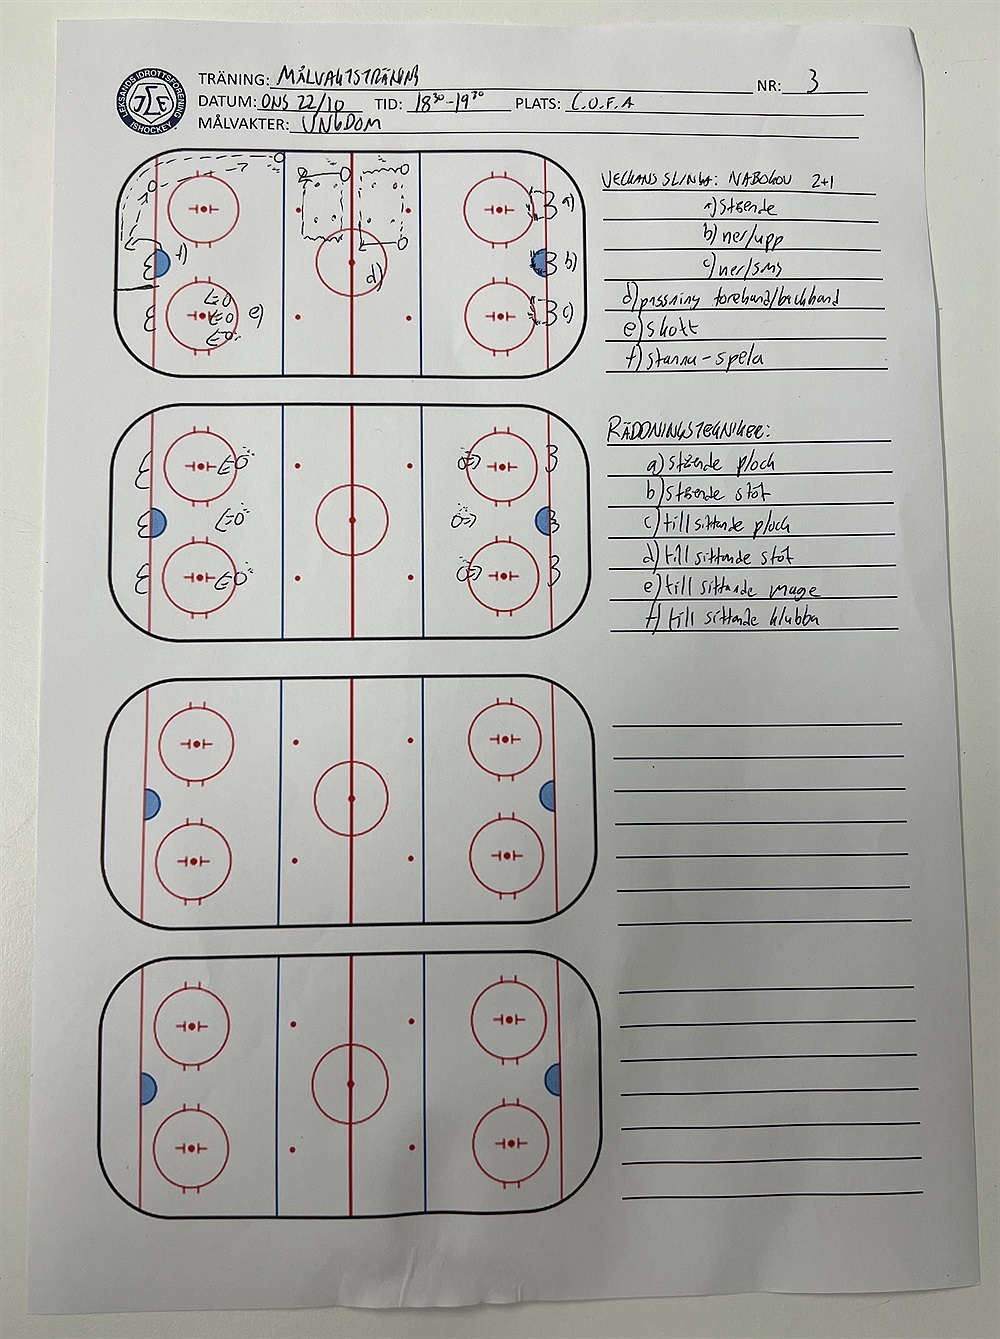 LEKSANDS IDROTTSFÖRENING
ISHOCKEY
TRÄNING: MÅLVAKTSTRÄNING NR: 3
DATUM: ONS 22/10 TID: 18³⁰-19³⁰ PLATS: L.O.F.A
MÅLVAKTER: UNGDOM
a)
b)
c)
d)
e)
f)
VECKANS SLINGA: NABOKOV 2+1
a) Stående
b) ner/upp
c) ner/sms
d) passning forehand/backhand
e) skott
f) stanna - spela
RÄDDNINGSTEKNIKER:
a) stående plock
b) stående stöt
c) till sittande plock
d) till sittande stöt
e) till sittande mage
f) till sittande klubba